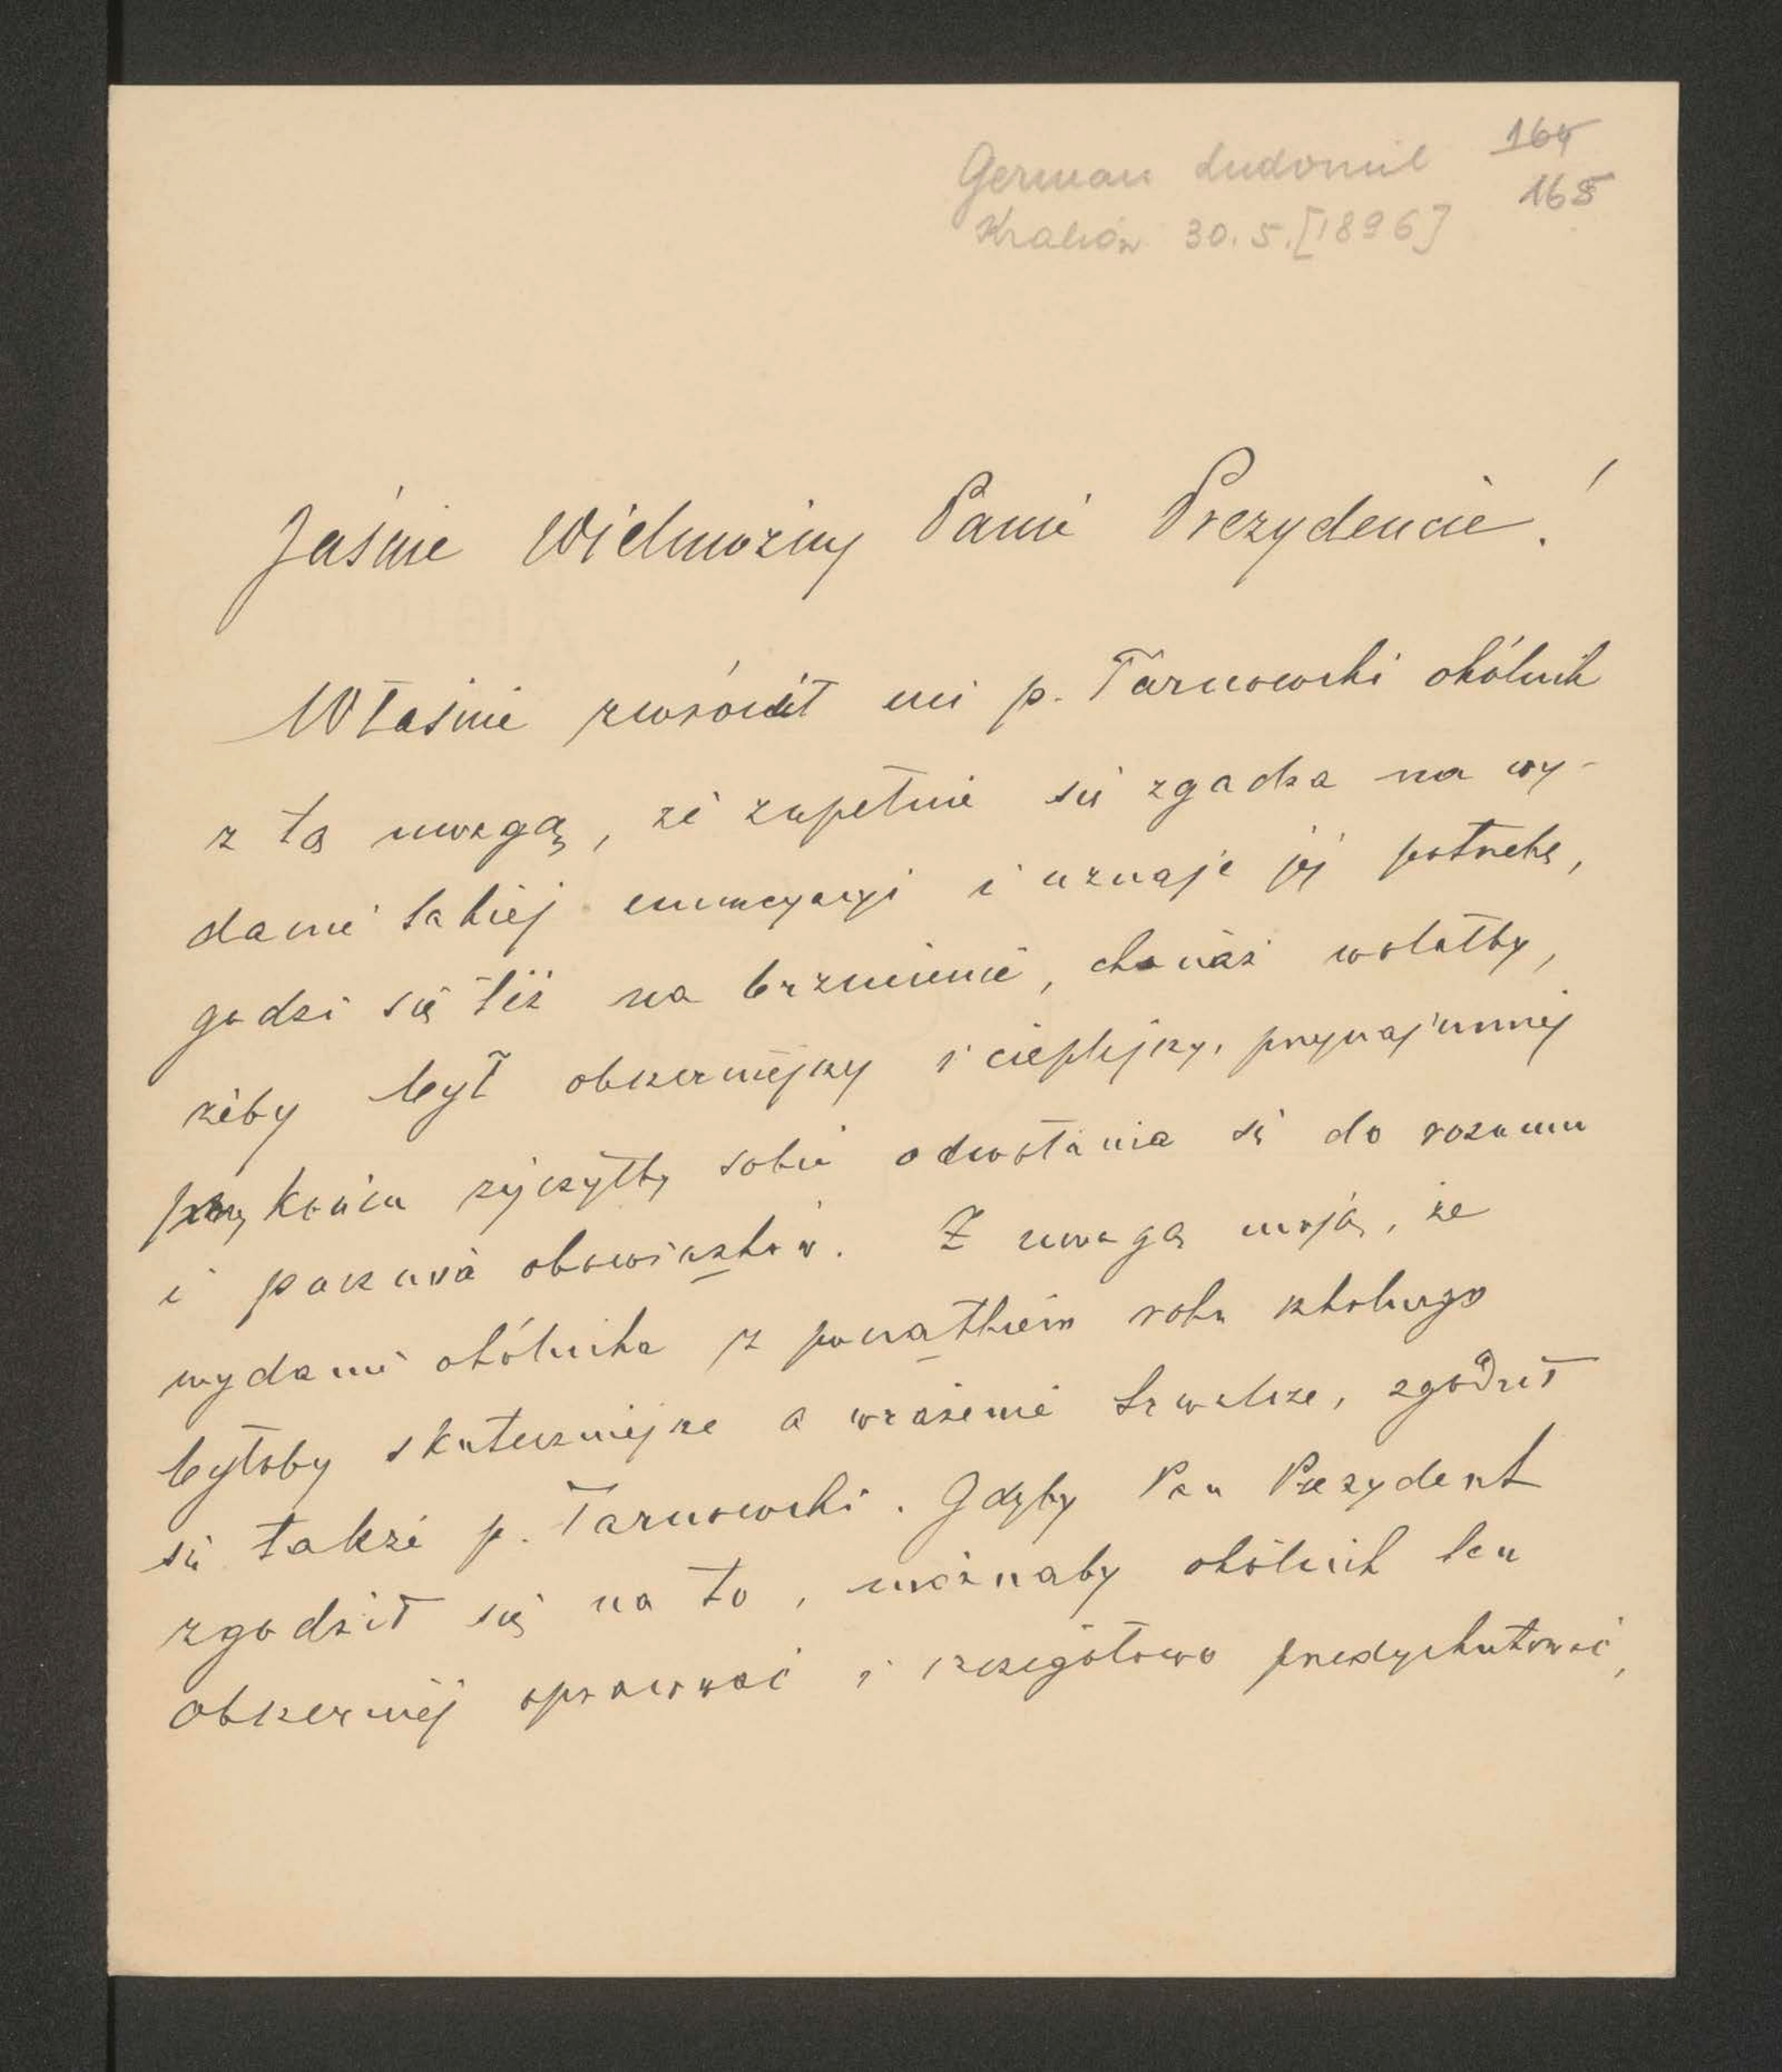 German Ludomił 164
Kraków 30.5.[1896] 165
Jaśnie Wielmożny Panie Prezydencie!
Właśnie zwrócił mi p. Tarnowski okólnik
z tą uwagą, że zupełnie się zgadza na wy-
danie takiej enuncyacyi i uznaje jej potrzebę,
godzi się też na brzmienie, chociaż wolałby,
żeby był obszerniejszy i cieplejszy, przynajmniej
przy końcu życzyłby sobie odwołania się do rozumu
i poczucia obowiązków. Z uwagą moją, że
wydanie okólnika z początkiem roku szkolnego
byłoby skuteczniejsze a wrażenie trwalsze, zgodził
się także p. Tarnowski. Gdyby Pan Prezydent
zgodził się na to, możnaby okólnik ten
obszerniej opracować i szczegółowo przedyskutować,